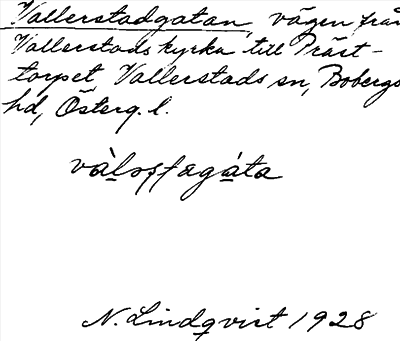 Vallerstadgatan, vägen från
Vallerstads kyrka till Präst-
torpet Vallerstads sn, Bobergs
hd, Österg. l.
vàlosstagáta
N. Lindqvist 1928